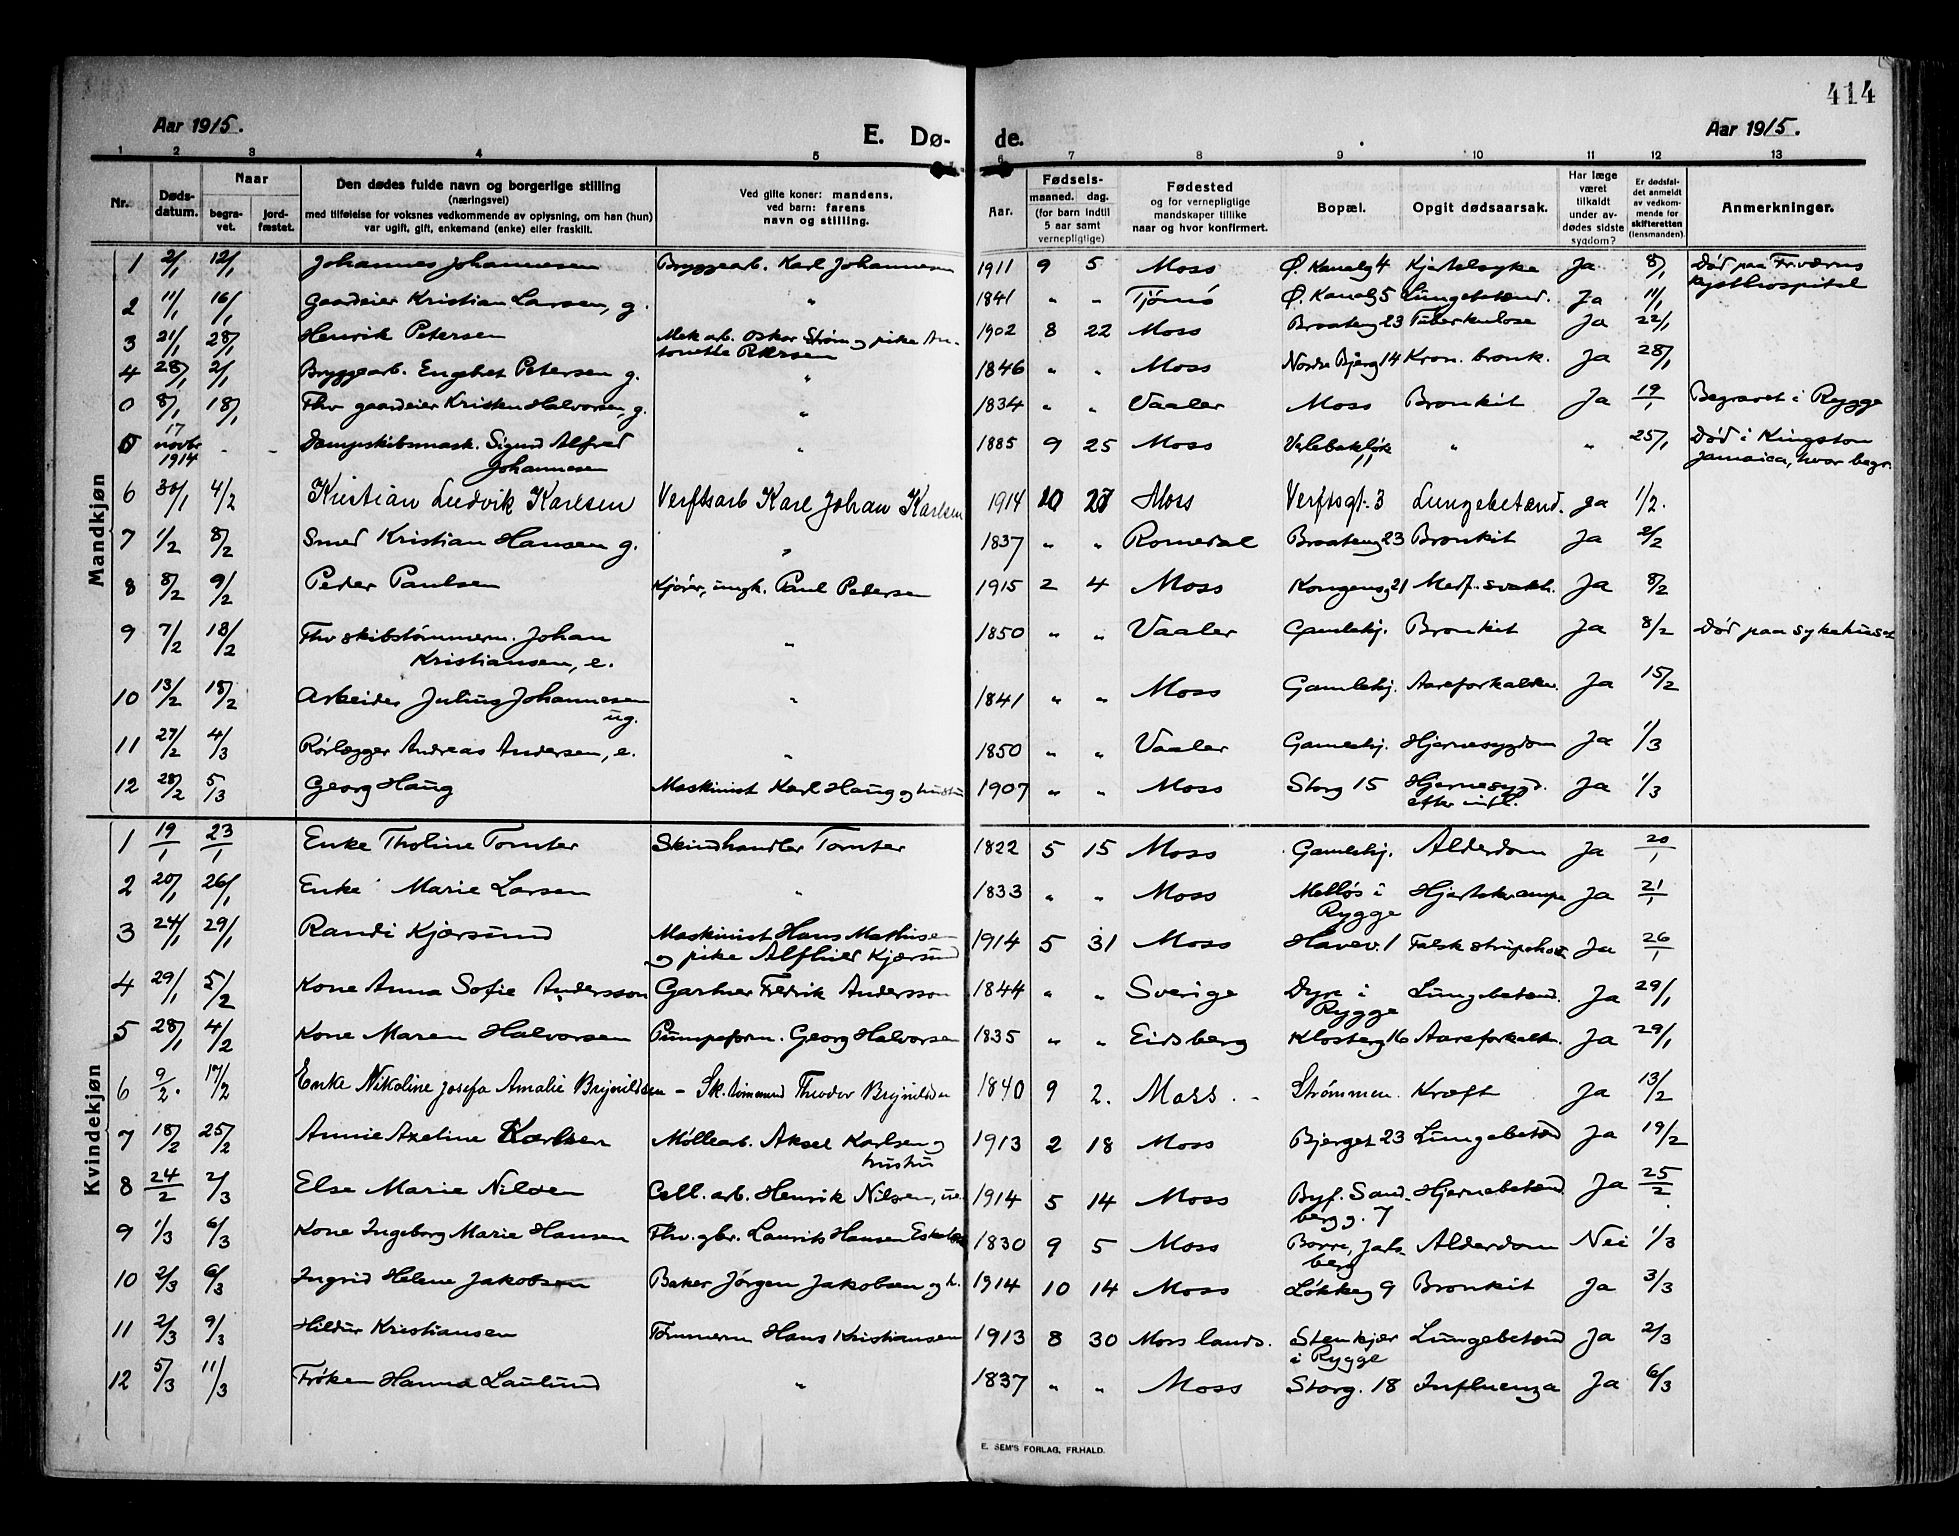 414
Aar 1915.
E. Dø-
de.
Aar 1915.
1 2 3 4 5 6 7 8 9 10 11 12 13
Nr.
Døds-
datum.
Naar
begra-
vet.
jord-
fæstet.
Den dødes fulde navn og borgerlige stilling
(næringsvei)
med tilføielse for voksnes vedkommende av oplysning, om han (hun)
var ugift, gift, enkemand (enke) eller fraskilt.
Ved gifte koner: mandens,
ved barn: farens
navn og stilling.
Aar.
Fødsels-
maaned. dag.
(for barn indtil
5 aar samt
vernepligtige)
Fødested
og for vernepligtige
mandskaper tillike
naar og hvor konfirmert.
Bopæl.
Opgit dødsaarsak.
Har læge
været
tilkaldt
under av-
dødes sidste
sygdom?
Er dødsfal-
det anmeldt
av vedkom-
mende for
skifteretten
(lensmanden).
Anmerkninger.
Mandkjøn
1 2/1 12/1 Johannes Johannesen Bryggearb. Karl Johannesen 1911 9 5 Moss Ø. Kanalg 4 Kjertelsyke Ja 8/1 Død paa Fredværns
kysthospital
2 11/1 16/1 Gaardeier Kristian Larsen, g. " 1841 " " Tjømø Ø. Kanalg 5 Lungebetænd. Ja 11/1
3 21/1 28/1 Henrik Petersen Mek arb. Oskar Strøm og pike An-
tonette Petersen 1902 8 22 Moss Braateng 23 Tuberkulose Ja 22/1
4 28/1 2/1 Bryggearb. Engebret Petersen g. " 1846 " " Moss Nordre Bjerg 14 Kron. bronk. Ja 28/1
0 8/1 18/1 Fhv gaardeier Kristen Halvorsen, g. " 1834 " " Vaaler Moss Bronkit Ja 19/1 Begravet i Rygge
5 17
novbr
1914 - - Dampskibsmask. Sigurd Alfred
Johannesen " 1885 9 25 Moss
11 " " 25/1 Død i Kingston
Jamaica, hvor begr.
6 30/1 4/2 Kristian Ludvik Karlsen Verftsarb Karl Johan Karlsen 1914 10 27 Moss Verftsgt. 3 Lungebetænd. ja 1/2.
7 1/2 8/2 Smed Kristian Hansen g. " 1837 " " Romedal Braateng 23 Bronkit Ja 2/2
8 8/2 9/2 Peder Paulsen Kjører, ungk. Paul Petersen 1915 2 4 Moss Kongensg 21 Medf. svakh. Ja 8/2
9 7/2 18/2 Fhv skibstømmerm. Johan
Kristiansen, e. " 1850 " " Vaaler Gamlehj. Bronkit Ja 8/2 Død paa sykehuset
10 13/2 18/2 Arbeider Julius Johannesen
ug. " 1841 " " Moss Gamlehj. Aareforkalkn. Ja 15/2
11 27/2 4/3 Rørlægger Andreas Andersen, e. " 1850 " " Vaaler Gamlehj. Hjernesygdom Ja 1/3
12 28/2 5/3 Georg Haug Maskinist Karl Haug og hustru 1907 " " Moss Storg 15 Hjernesygd.
efter infl. Ja 1/3
Kvindekjøn
1 19/1 23/1 Enke Tholine Tomter Skindhandler Tomter 1822 5 15 Moss Gamlehj. Alderdom Ja 20/1
2 20/1 26/1 Enke Marie Larsen " 1833 " " Moss Melløs i
Rygge Hjertekrampe Ja 21/1
3 24/1 29/1 Randi Kjærsund Maskinist Hans Mathisen
og pike Alfhild Kjærsund 1914 5 31 Moss Havev. 1 Falsk strupehoste Ja 26/1
4 29/1 5/2 Kone Anna Sofie Andersson Gartner Fredrik Andersson 1844 " " Sverige Dyre i
Rygge Lungebetænd. Ja 29/1
5 28/1 4/2 Kone Maren Halvorsen Pumpeform. Georg Halvorsen 1835 " " Eidsberg Klosterg 16 Aareforkalkn. Ja 29/1
6 9/2. 17/2 Enke Nikoline Josefa Amalie Brynildsen - Sk.tømmmd Theodor Brynildsen 1840 9 2. Moss. - Strømmen. Kræft Ja 13/2
7 18/2 25/2 Annie Axeline Karlsen Møllearb. Aksel Karlsen og
hustru 1913 2 18 Moss Bjerget 23 Lungebetænd Ja 19/2
8 24/2 2/3 Else Marie Nilsen Cell. arb. Henrik Nilsen, 1914 5 14 Moss Byf. Sand-
bergg. 7 Hjernebetænd Ja 25/2
9 1/3 6/3 Kone Ingeborg Marie Hansen Fhv. gbr. Laurits Hansen 1830 9 5 Moss Borre, Jats-
berg Alderdom Nei 1/3
10 2/3 6/3 Ingrid Helene Jakobsen Baker Jørgen Jakobsen og h. 1914 10 14 Moss Løkkeg 9 Bronkit Ja 3/3
11 2/3 9/3 Hildur Kristiansen Tømmerm Hans Kristiansen 1913 8 30 Moss lands. Stenkjær
i Rygge Lungebetænd Ja 2/3
12 5/3 11/3 Frøken Hanna Laulund " 1837 " " Moss Storg. 18 Influenza Ja 6/3
E. SEM'S FORLAG, FR.HALD.